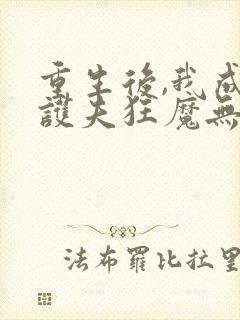 重生後,我成
護夫狂魔無
法布羅比拉里